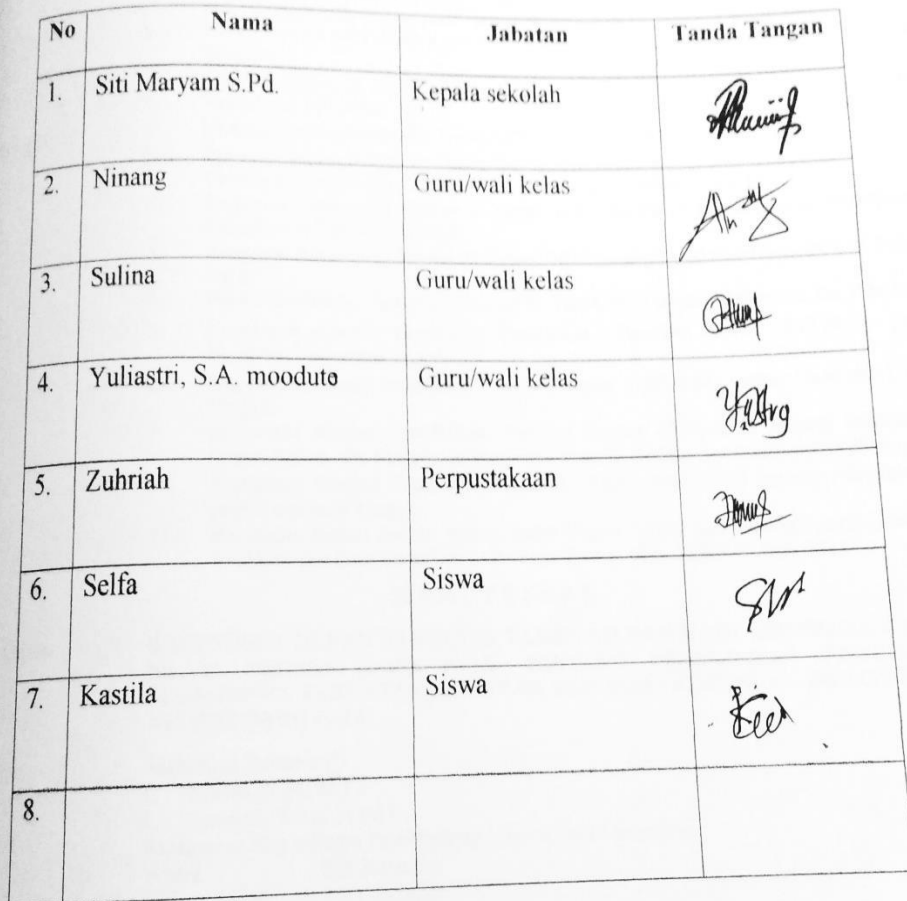 No Nama Jabatan Tanda Tangan
1. Siti Maryam S.Pd. Kepala sekolah
2. Ninang Guru/wali kelas
3. Sulina Guru/wali kelas
4. Yuliastri, S.A. mooduto Guru/wali kelas
5. Zuhriah Perpustakaan
6. Selfa Siswa
7. Kastila Siswa
8.